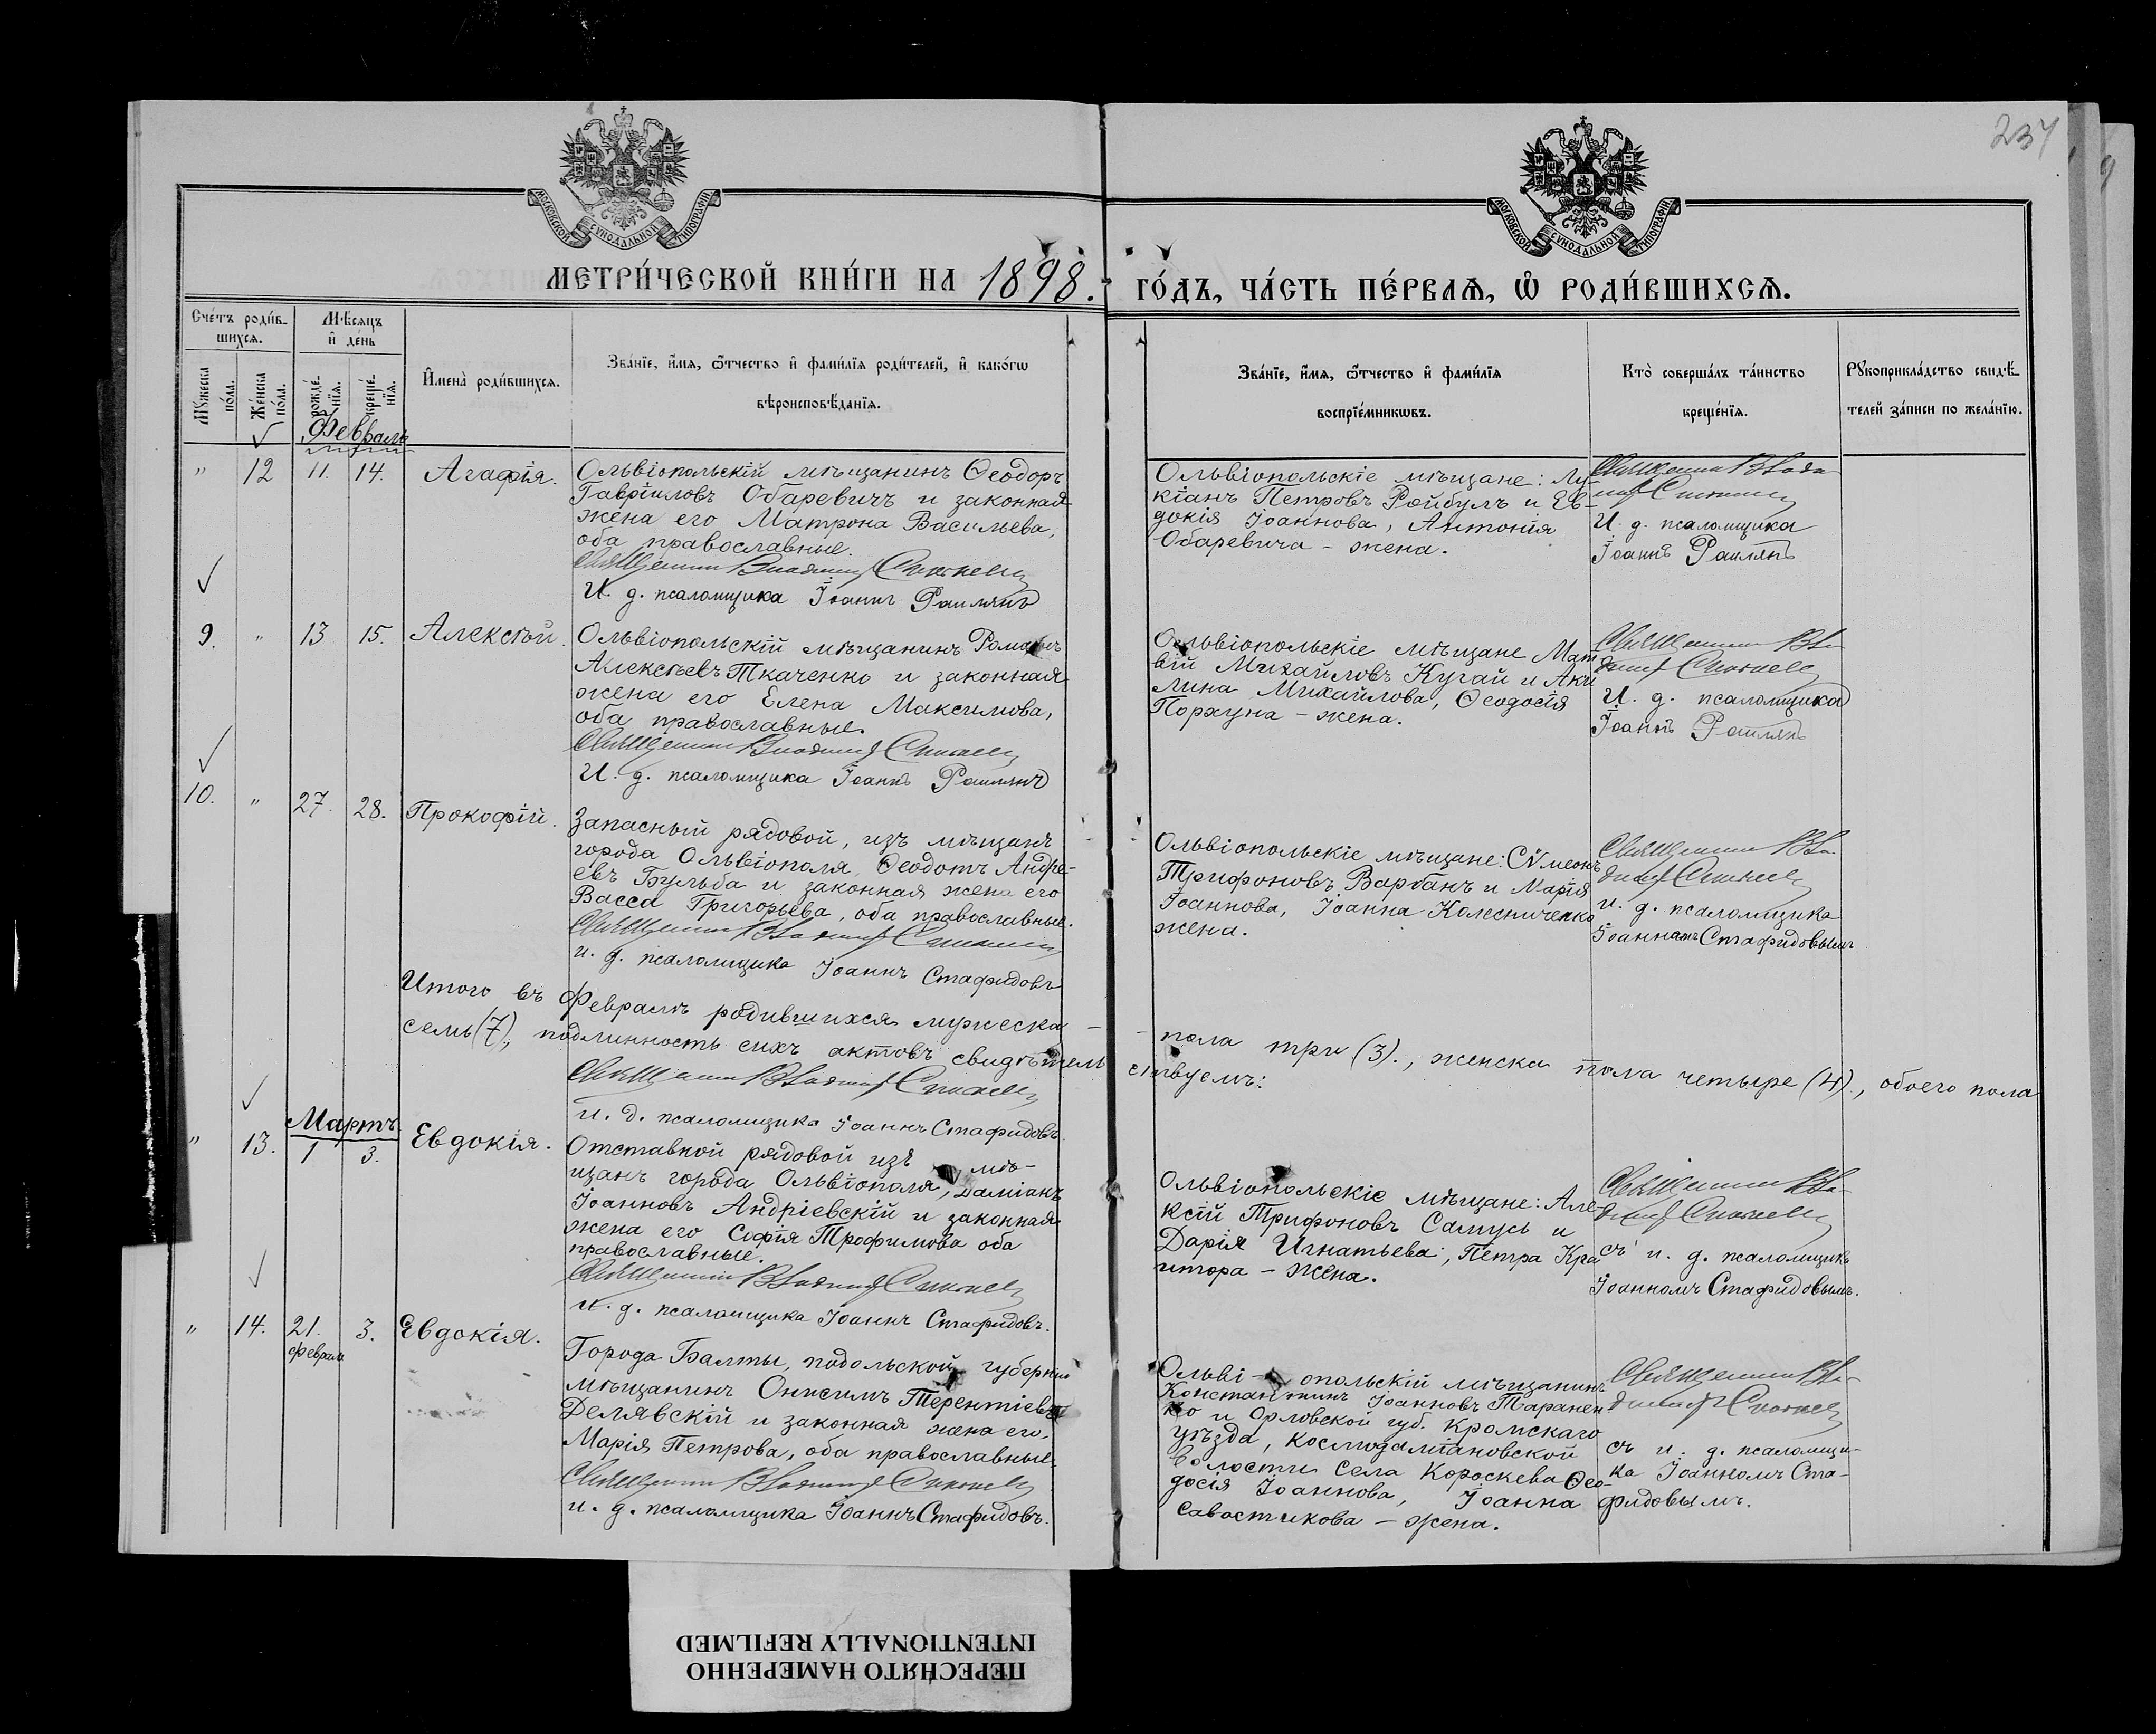 237
МОСКОВСКОЙ СУНОДАЛЬНОЙ ТИПОГРАФІИ
МОСКОВСКОЙ СУНОДАЛЬНОЙ ТИПОГРАФІИ
МЕТРИ́ЧЕСКОЙ КНИ́ГИ НА 1898.
ГО́ДЪ, ЧА́СТЬ ПЕ́РВАѦ, Ѽ РОДИ́ВШИХСѦ.
Сче́тъ роди́в-
шихсѧ.
Мѣ́сѧцъ
и҆ де́нь
Мꙋ́жеска
по́ла.
Же́нска
по́ла.
рожде́-
нїѧ.
креще́-
нїѧ.
И҆мена̀ роди́вшихсѧ.
Зва́нїе, и҆́мѧ, ѻ҆́тчество и҆ фами́лїѧ роди́телей, и҆ како́гѡ
вѣроисповѣ́данїѧ.
Зва́нїе, и҆́мѧ, ѻ҆́тчество и҆ фами́лїѧ
воспрїе́мникѡвъ.
Кто̀ соверша́лъ та́инство
креще́нїѧ.
Рꙋкоприкла́дство свидѣ́-
телей за́писи по жела́нїю.
Февраль
" 12 11. 14. Агафія.
Ольвіопольскій мѣщанинъ Ѳеодоръ
Гавріиловъ Обаревичъ и законная
жена его Матрона Васильева,
оба православные.
Священникъ Владимиръ
И. д. псаломщика Іоаннъ
Ольвіопольскіе мѣщане: Лу-
кіанъ Петровъ Ройбулъ и Ев-
докія Іоаннова, Антонія
Обаревича - жена.
Священникъ Влади-
миръ
И. д. псаломщика
Іоаннъ
9. " 13 15. Алексѣй.
Ольвіопольскій мѣщанинъ Романъ
Алексѣевъ Ткаченко и законная
жена его Елена Максимова,
оба православные.
Священникъ Владимиръ
И. д. псаломщика Іоаннъ
Ольвіопольскіе мѣщане Мат
вій Михайловъ Кугай и Аки
лина Михайлова, Ѳеодосія
Порхуна - жена.
Священникъ Вла-
димиръ
И. д. псаломщика
Іоаннъ
10. " 27 28. Прокофій.
Запасный рядовой, изъ мѣщанъ
города Ольвіополя, Ѳеодотъ Андре-
евъ Бульба и законная жена его
Васса Григорьева, оба православные.
Священникъ Владимиръ
и. д. псаломщика Іоаннъ Стафидовъ
Ольвіопольскіе мѣщане: Сѵмеонъ
Трифоновъ Варбанъ и Марія
Іоаннова, Іоанна Колесниченко
жена.
Священникъ Вла-
димиръ
и. д. псаломщика
Іоанномъ Стафидовымъ
Итого въ Февралѣ родившихся мужеска - - пола три (3)., женска пола четыре (4)., обоего пола
семь (7)., подлинность сихъ актовъ свидѣтель ствуемъ:
Священникъ Владимиръ
и. д. псаломщика Іоаннъ Стафидовъ.
Мартъ
" 13. 1 3. Евдокія.
Отставной рядовой изъ мѣ-
щанъ города Ольвіополя, Даміанъ
Іоанновъ Андріевскій и законная
жена его Софія Трофимова оба
православные.
Священникъ Владимиръ
и. д. псаломщика Іоаннъ Стафидовъ.
Ольвіопольскіе мѣщане: Але-
ксій Трифоновъ Самусь и
Дарія Игнатьева, Петра Кра
итора - жена.
Священникъ Вла-
димиръ
съ и. д. псаломщика
Іоанномъ Стафидовымъ.
" 14. 21. 3. Евдокія.
Февраля
Города Балты, подольской губерніи
мѣщанинъ Онисимъ Терентіевъ
Делявскій и законная жена его,
Марія Петрова, оба православные.
Священникъ Владимиръ
и. д. псаломщика Іоаннъ Стафидовъ.
Ольві- опольскій мѣщанинъ
Константинъ Іоанновъ Таранен
ко и Орловской губ. Кромскаго
уѣзда, Космодаміановской
волости села Короскева Ѳео-
досія Іоаннова, Іоанна
Савостикова - жена.
Священникъ Вла-
димиръ
съ и. д. псаломщи-
ка Іоанномъ Ста-
фидовымъ.
ПЕРЕСНЯТО НАМЕРЕННО
INTENTIONALLY REFILMED